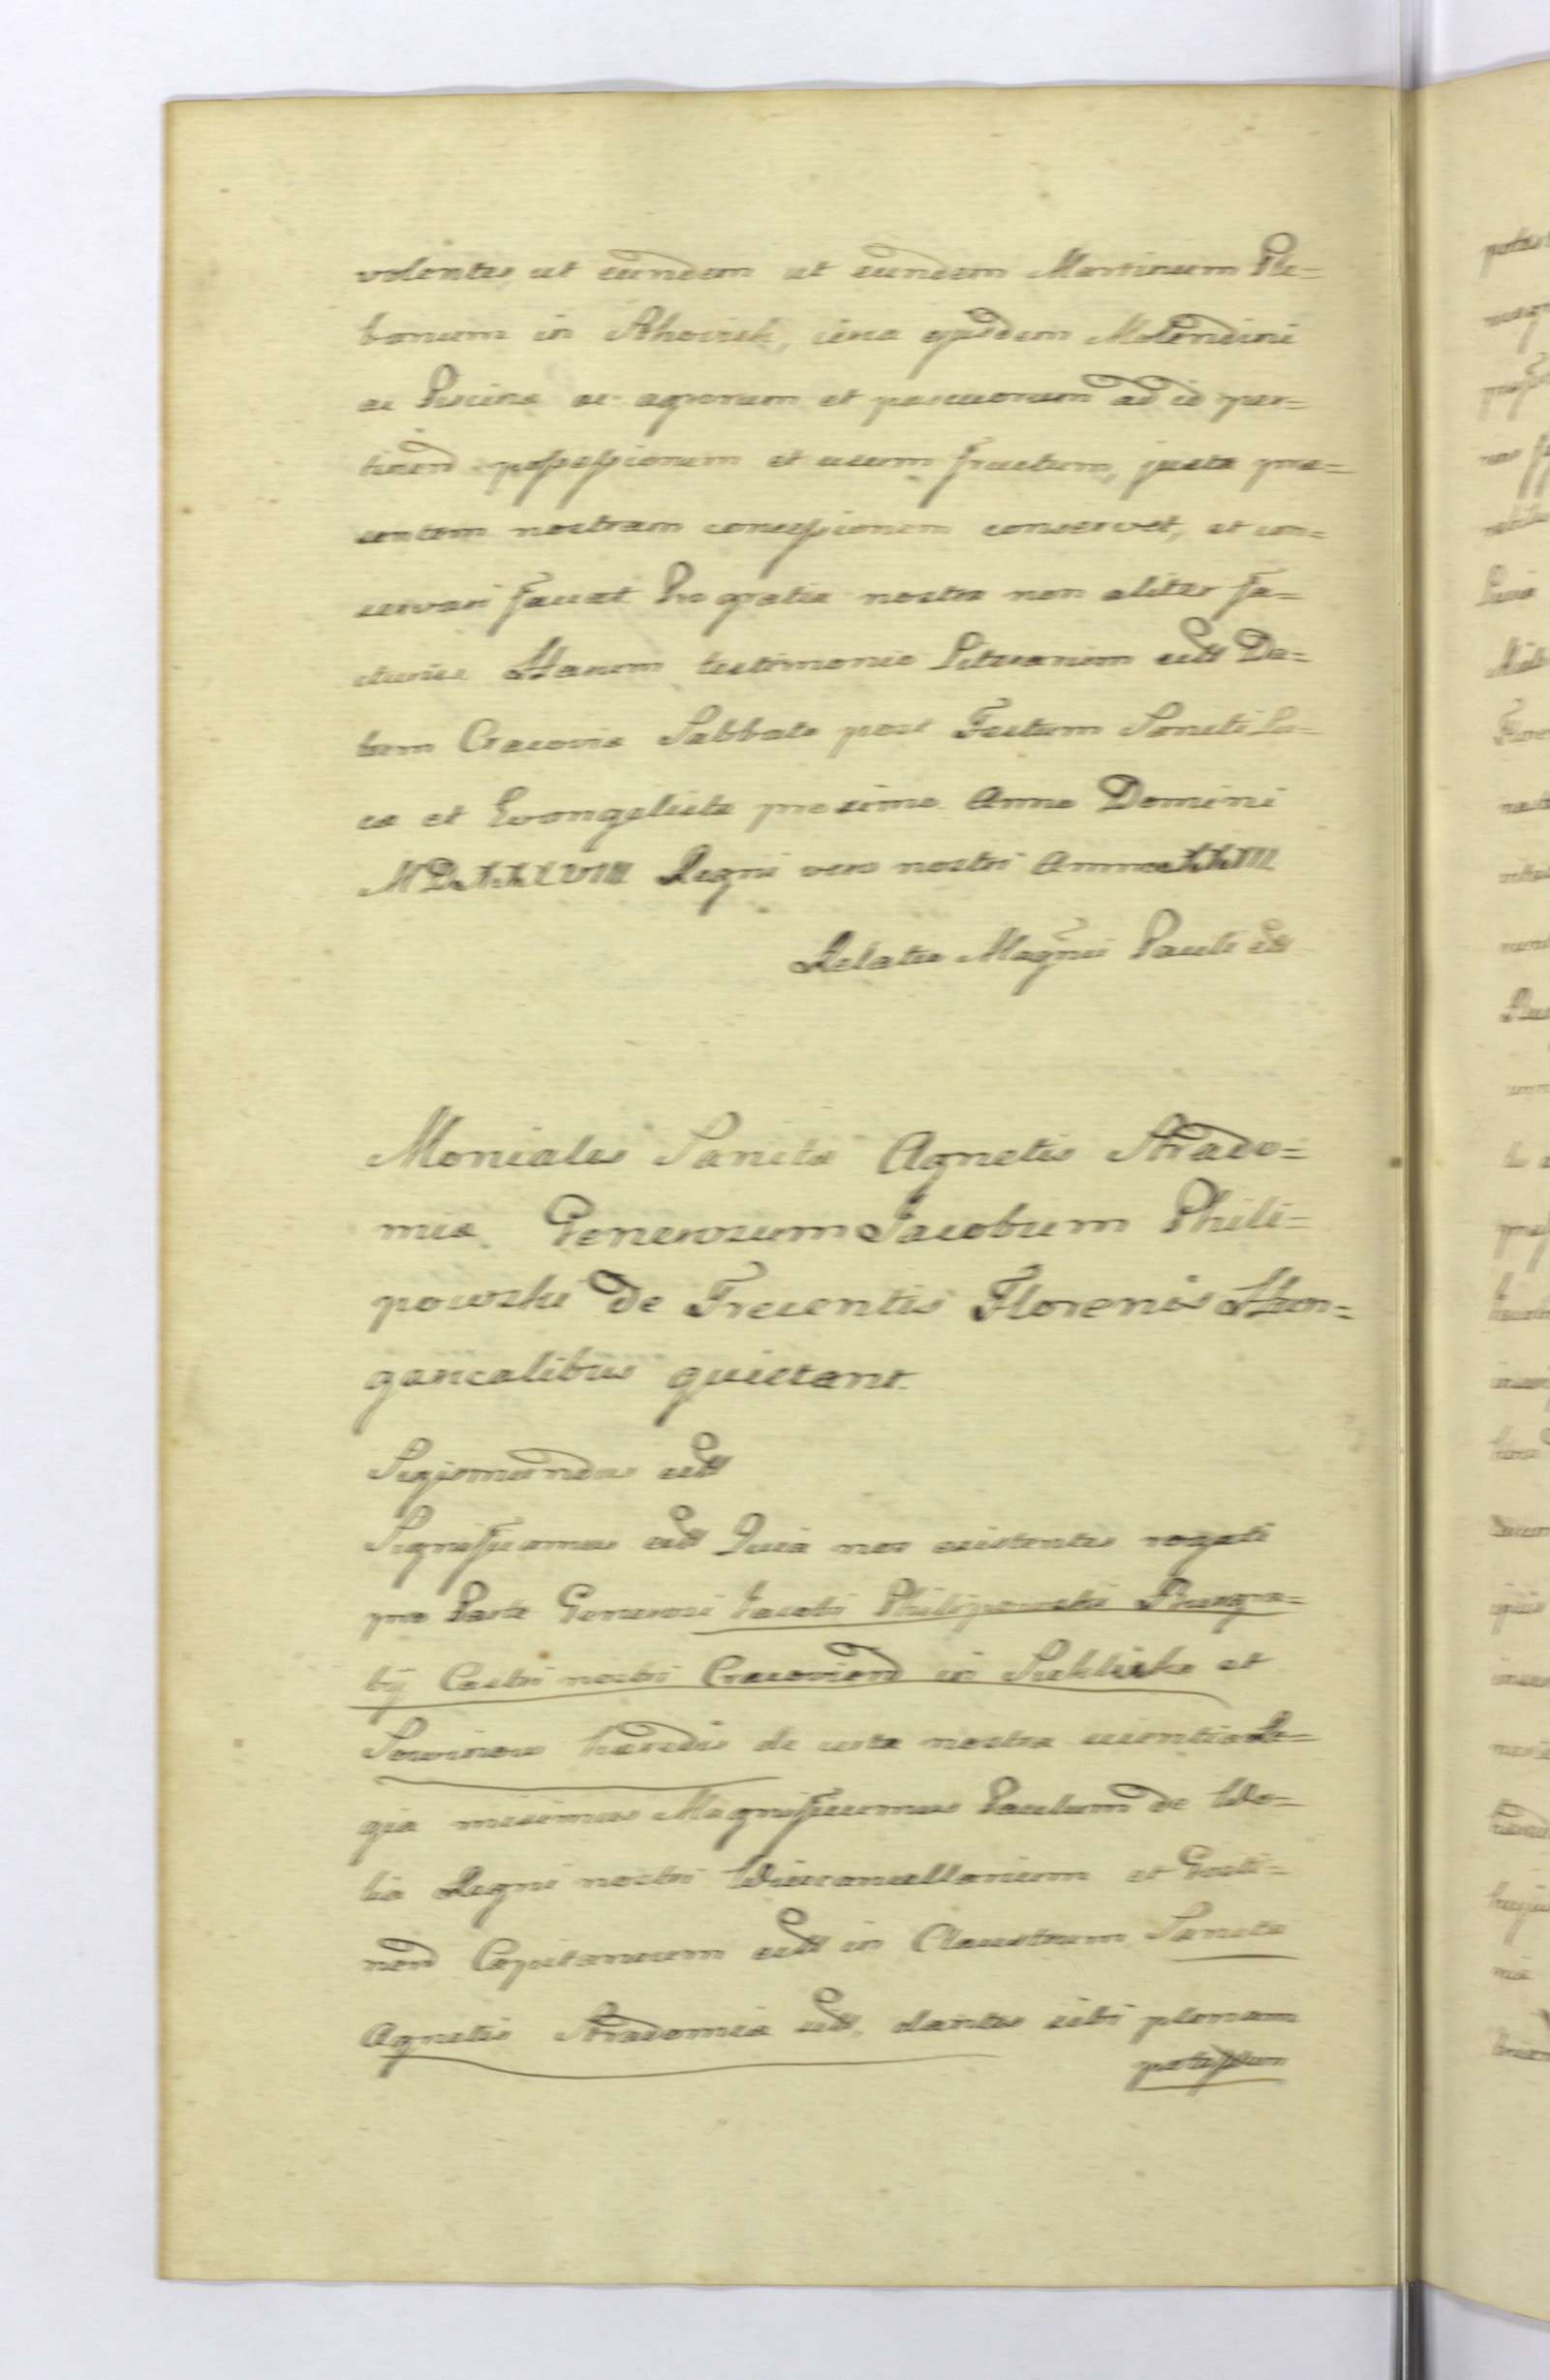 volentes, ut eundem ut eundem Martinum Ple=
banum in circa ejusdem Molendini
ac Piscina ac agrorum et pascuorum ad id per=
tinend possessionem et usum fructum, juxta prae=
sentem nostram concessionem conservet, et con=
servari faciat Pro gratia nostra non aliter fa=
cturus Harum testimonio Literarum ett Da=
tum Cracoviæ Sabbato post Festum Sancti Lu=
cæ et Evangelistæ proximo. Anno Domini
Regni vero nostri Anno
Relatio Magnci Pauli ett
Moniales Sanctæ Agnetis Strado=
miæ Generosum Jacobum Phili=
powski de Trecentis Florenis Hun=
garicalibus quietant.
Sigismundus ett
Significamus ett Quia nos existentes rogati
pro Parte Generosi Jacobi Philipowski Burgra=
bij Castri nostri Cracoviend in et
hæredis de certa nostra scientia Re=
gia misimus Magnificumus Paulum de Wo=
lia Regni nostri Vicecancellarium et Gosti=
nend Capitaneum ett in Claustrum Sanctæ
Agnetis Stradomiæ ett, dantes sibi plenam